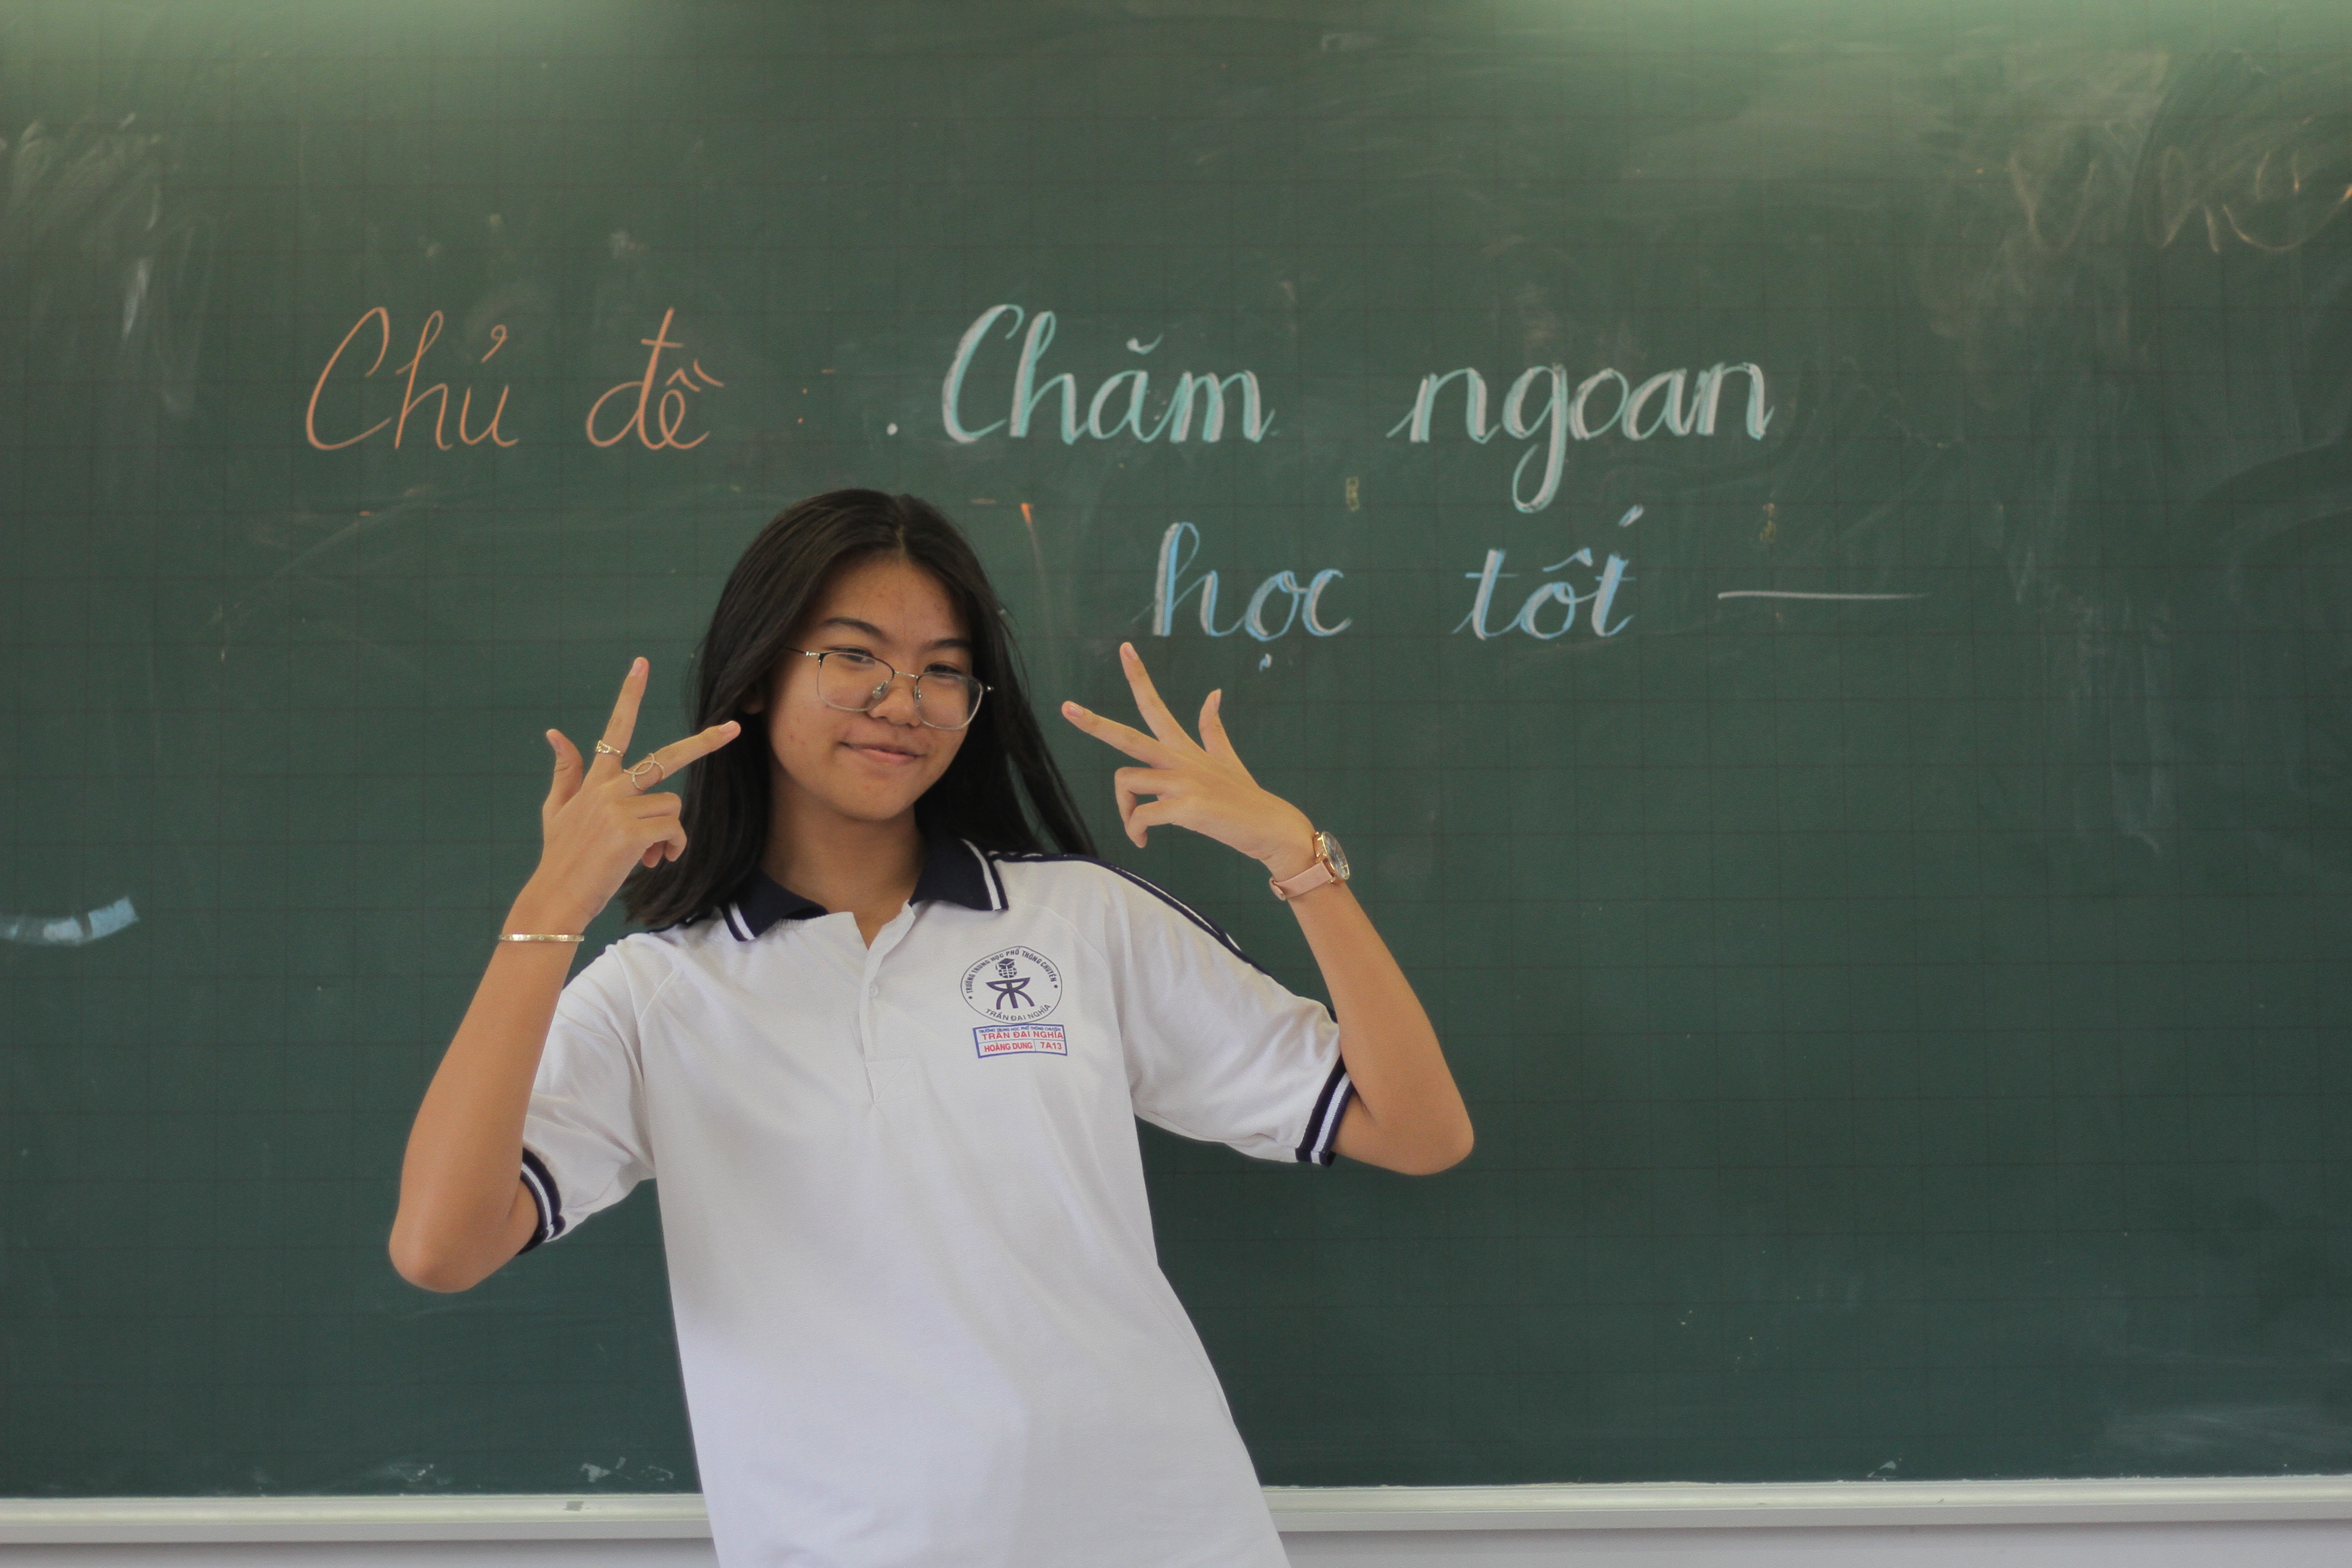 Chủ đề : Chăm ngoan
học tốt
TRƯỜNG TRUNG HỌC PHỔ THÔNG CHUYÊN
TRẦN ĐẠI NGHĨA
TRƯỜNG TRUNG HỌC PHỔ THÔNG CHUYÊN
TRẦN ĐẠI NGHĨA
HOÀNG DUNG 7A13